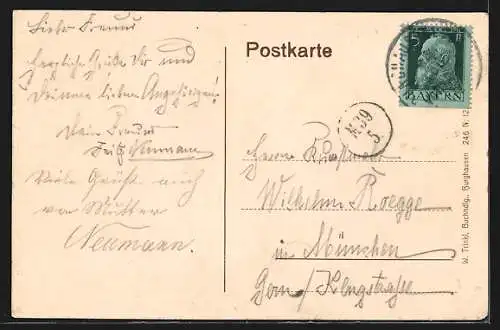 Lieber Freund
herzliche Grüße Dir und
Deinen lieben Angehörigen!
Dein Freund
Fritz Neumann
Viele Grüße auch
von Mutter
Neumann.
Postkarte
5
BAYERN
M 39
5.
Herrn Kunstmaler
Wilhelm Roegge
in München
Gern/
W. Trinkl, Buchhdlg., Burghausen 246 N. 12